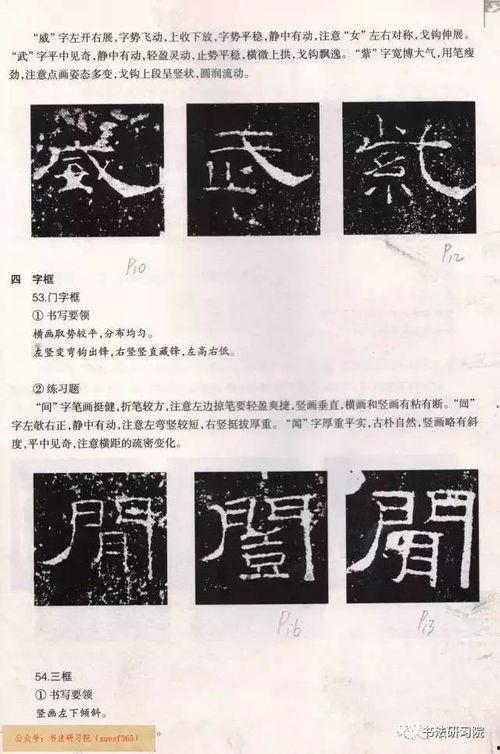 “威”字左开右展,字势飞动,上收下放,字势平稳,静中有动,注意“女”左右对称,戈钩伸展。
“武”字平中见奇,静中有动,轻盈灵动,止势平稳,横微上拱,戈钩飘逸。“紫”字宽博大气,用笔瘦
劲,注意点画姿态多变,戈钩上段呈竖状,圆润流动。
威 武 紫
P10 P12
四 字框
53.门字框
①书写要领
横画取势较平,分布均匀。
左竖变弯钩出锋,右竖竖直藏锋,左高右低。
②练习题
“间”字笔画挺健,折笔较方,注意左边掠笔要轻盈爽捷,竖画垂直,横画和竖画有粘有断。“闿”
字左欹右正,静中有动,注意左弯竖较短,右竖挺拔厚重。“闻”字厚重平实,古朴自然,竖画略有斜
度,平中见奇,注意横距的疏密变化。
閒 闓 聞
P16 P13
54.三框
①书写要领
竖画左下倾斜。
公众号:书法研习院(xuesf365)
书法研习院